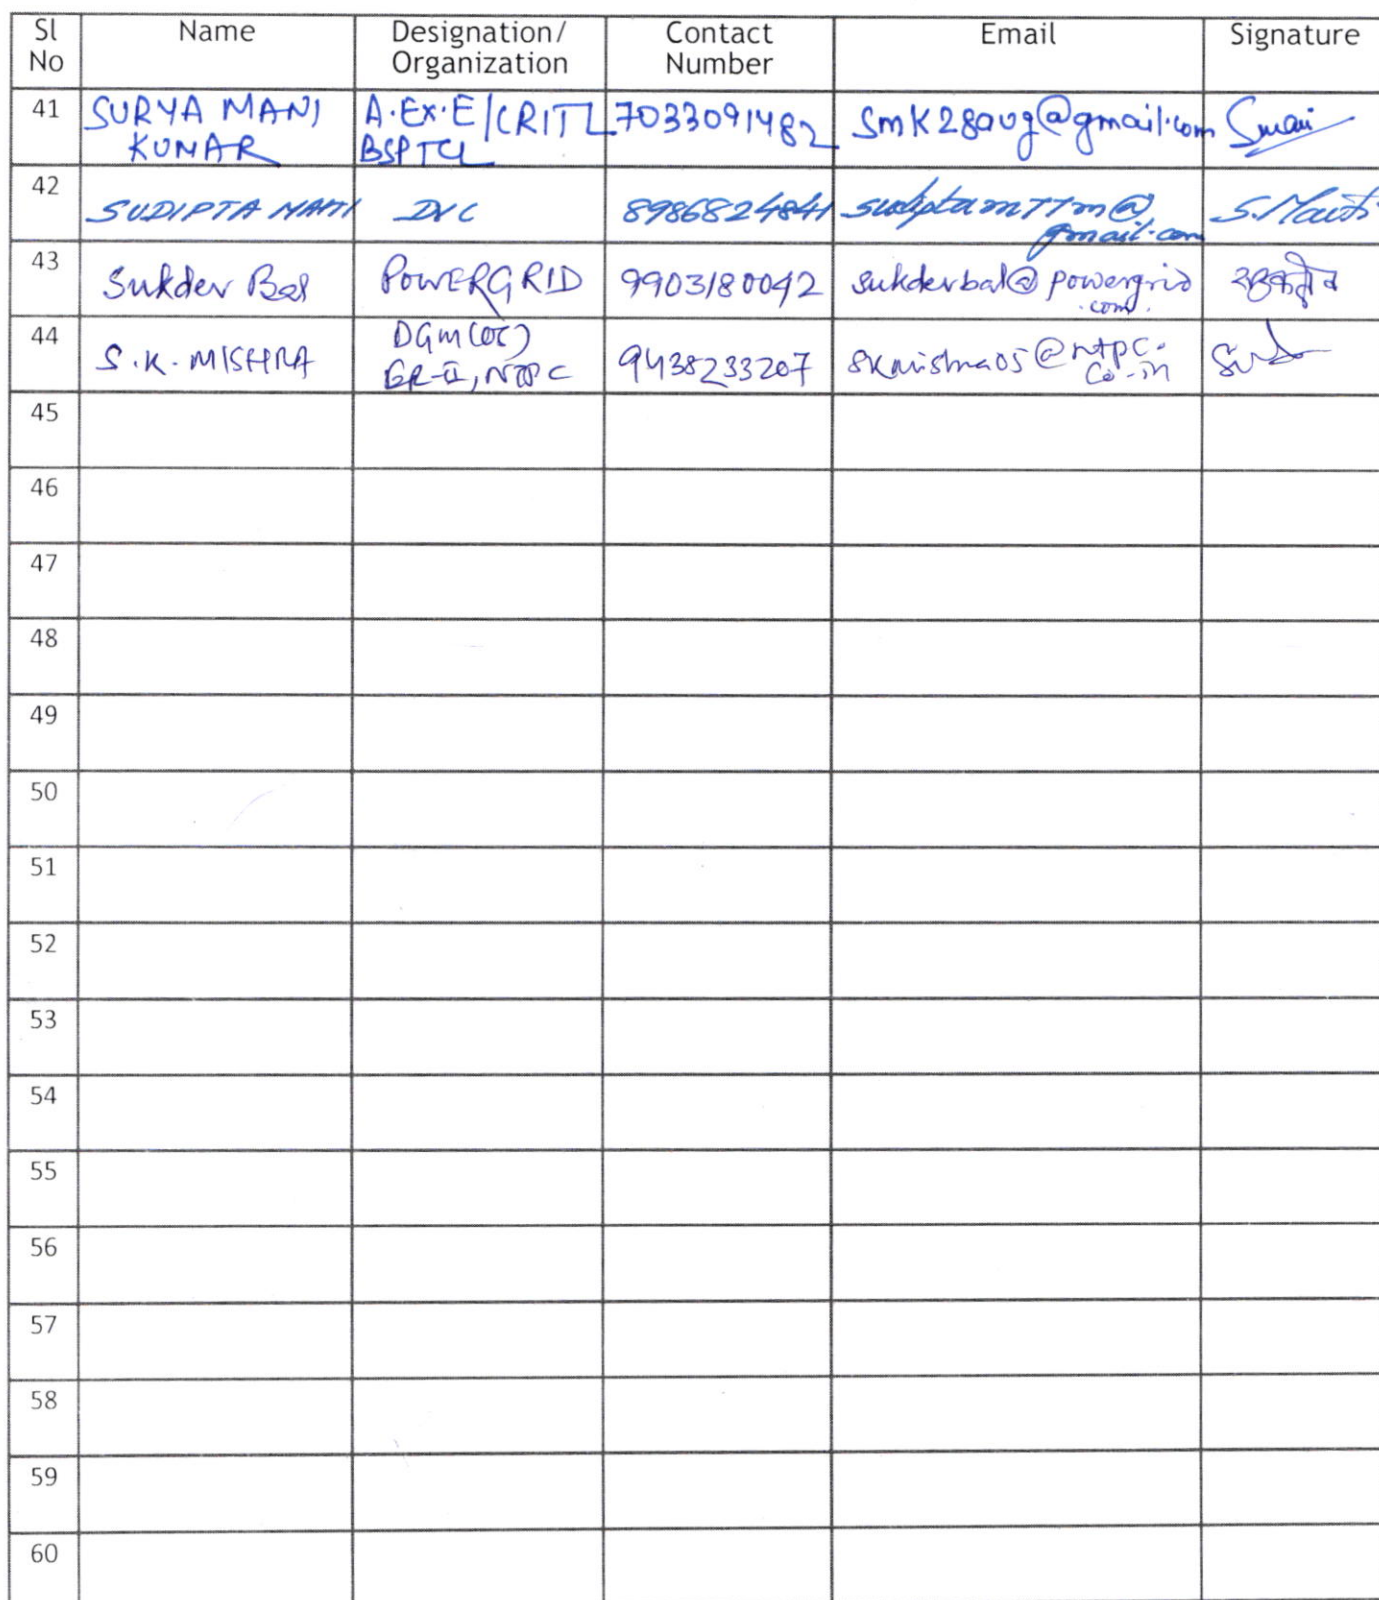 Sl No Name Designation/ Organization Contact Number Email Signature
41 SURYA MANI KUMAR A.Ex.E/CRITL BSPTCL 7033091482 Smk28aug@gmail.com Smani
42 SUDIPTA MAITI DVC 8986824841 @gmail.com S.Maiti
43 Sukdev Bal POWERGRID 9903180042 sukdevbal@powergrid.com.
44 S.K. MISHRA DGM ER-II, NTPC 9438233207 skmishra05@ntpc.co.in
45
46
47
48
49
50
51
52
53
54
55
56
57
58
59
60